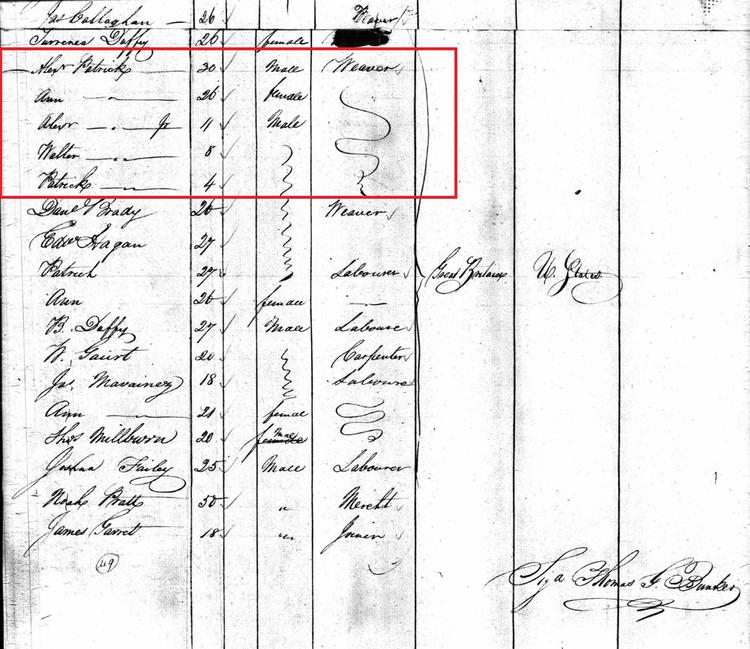 Jas Callaghan — 26 Weaver
Terrence Daffy 26 female
Alexr Patrick 30 Male Weaver
Ann — " — 26 female
Alexr — " — Jr 11 Male
Walter — " — 8
Patrick — " — 4
Danl Brady 26 Weaver
Edwd Hagan 27
Patrick 27 Labourer Great Britain U. States
Ann 26 female —
B. Daffy 27 Male Labourer
W. 20 Carpenter
Jas 18 Labourer
Ann — 21 female
Thos Millburn 20 female Male
Joshua Failey 25 Male Labourer
Noah Pratt 50 " Mercht
James Garret 18 " Joiner
49
Thomas G Bunker